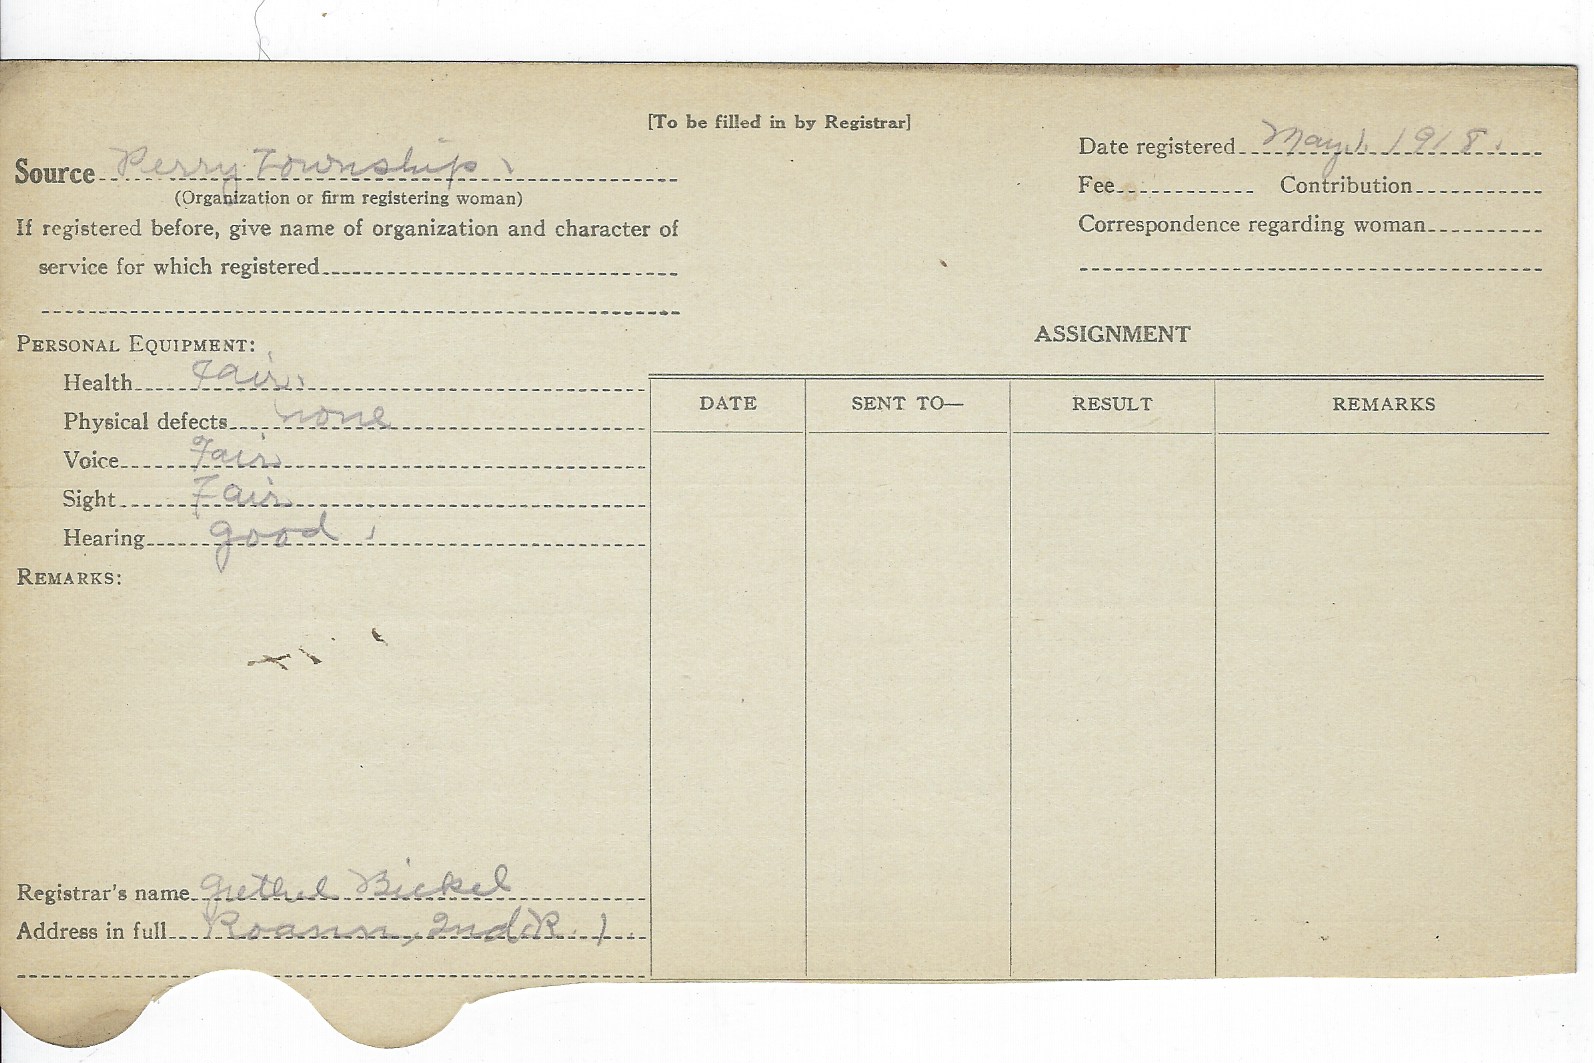 [To be filled in by Registrar]
Source Perry Township
(Organization or firm registering woman)
If registered before, give name of organization and character of
service for which registered
Date registered May 1, 1918.
Fee Contribution
Correspondence regarding woman
PERSONAL EQUIPMENT:
Health Fair.
Physical defects none
Voice Fair
Sight Fair
Hearing good
REMARKS:
ASSIGNMENT
DATE SENT TO— RESULT REMARKS
Registrar's name Grethel Bickel
Address in full Roann, Ind. R. 1.